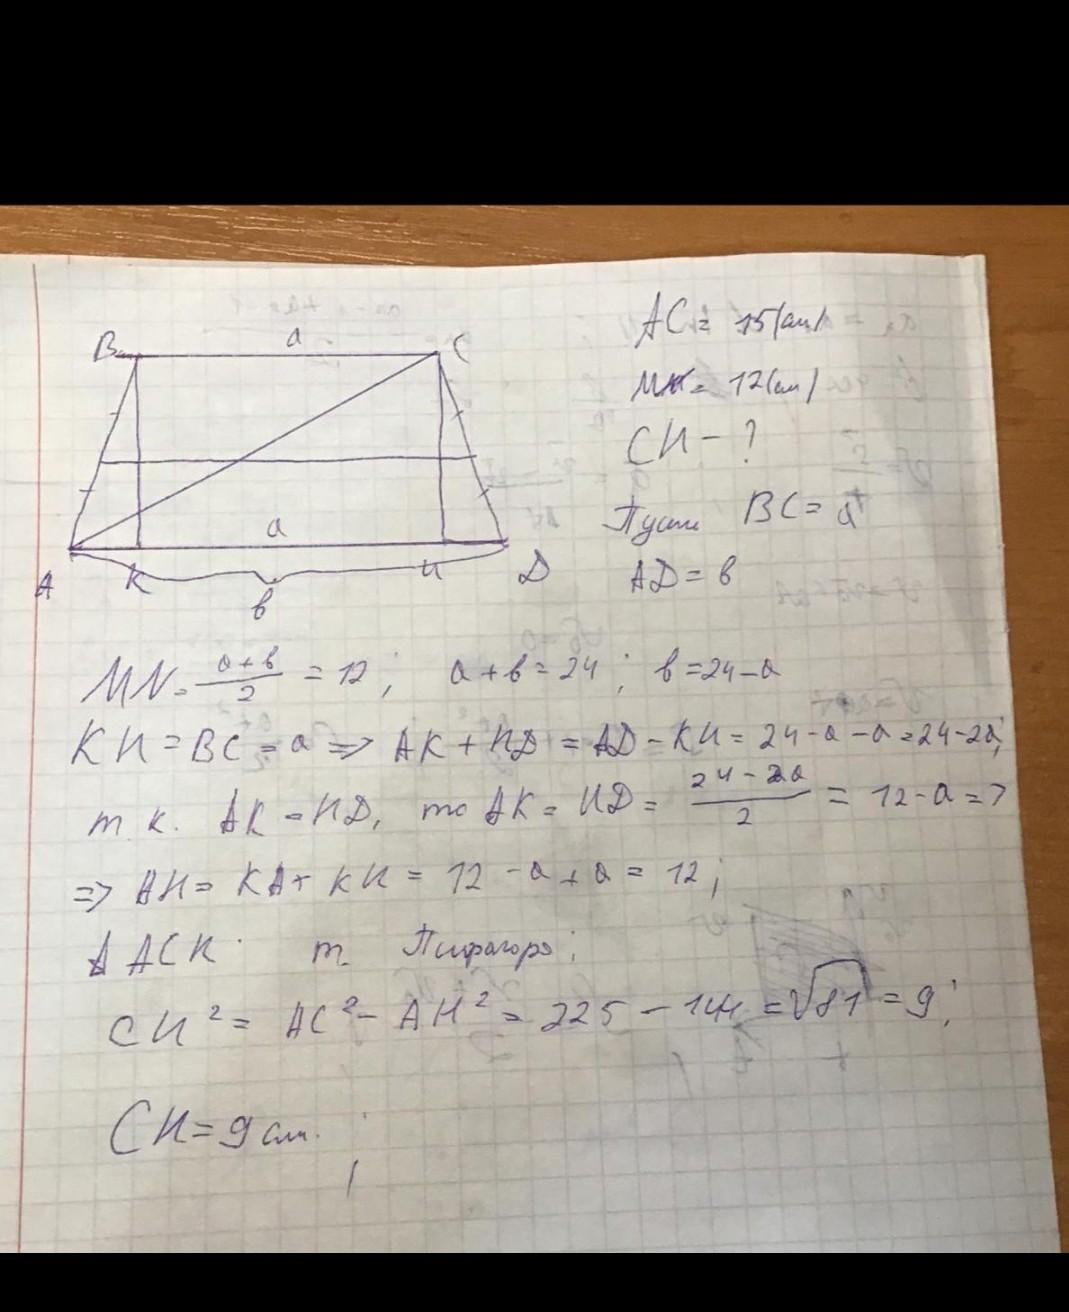 B a C
a
A K H D
в
AC = 15 (см)
MN = 12 (см)
CH - ?
Пусть BC = a
AD = в
MN = (a+в)/2 = 12; a + в = 24; в = 24 - a
KH = BC = a => AK + HD = AD - KH = 24 - a - a = 24 - 2a;
т.к. AK = HD, то AK = HD = (24 - 2a)/2 = 12 - a =>
=> AH = KA + KH = 12 - a + a = 12;
Δ ACH т. Пифагора:
CH² = AC² - AH² = 225 - 144 = √81 = 9;
CH = 9 см.